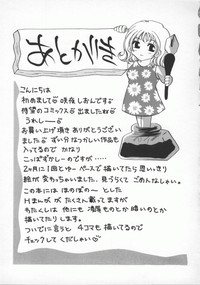 あとがき
こんにちは
初めまして♪ 咲夜しおんです♪
待望のコミックス 出ましたね♪
うれしー♪
お買い上げ頂き ありがとうござい
ました♪ ずい分なつかしい作品も
入ってるので かなり
こっぱずかしーのですが……
2ヶ月に1回とゆーペースで描いてたら思いっきり
絵が変わっちゃいました。見づらくて ごめんなしゃい。
この本には ほのぼの〜 とした
Hまんが が たくさん載ってますが
もたくしは 他にも 凌辱ものとか暗いのとか
描いてたりします。
ついでに言うと 4コマも描いてるので
チェックしてくだしゃい♪